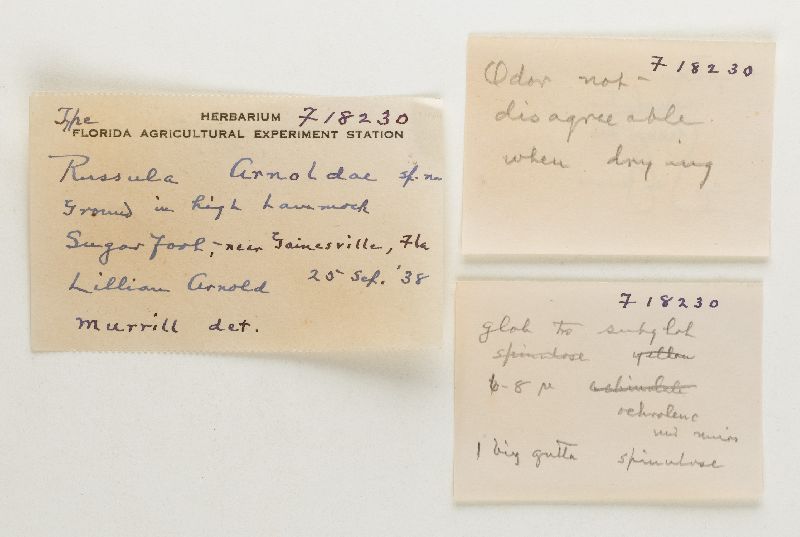 Type HERBARIUM F18230
FLORIDA AGRICULTURAL EXPERIMENT STATION
Russula Arnoldae sp. no
Ground in high hammock
Sugarfoot, near Gainesville, Fla
Lillian Arnold 25 Sep. '38
Murrill det.
F18230
Odor not
disagreeable
when drying
F18230
glob to subglob
spinulose yellow
6-8 µ echinulate
ochroleuc
1 big gutta spinulose